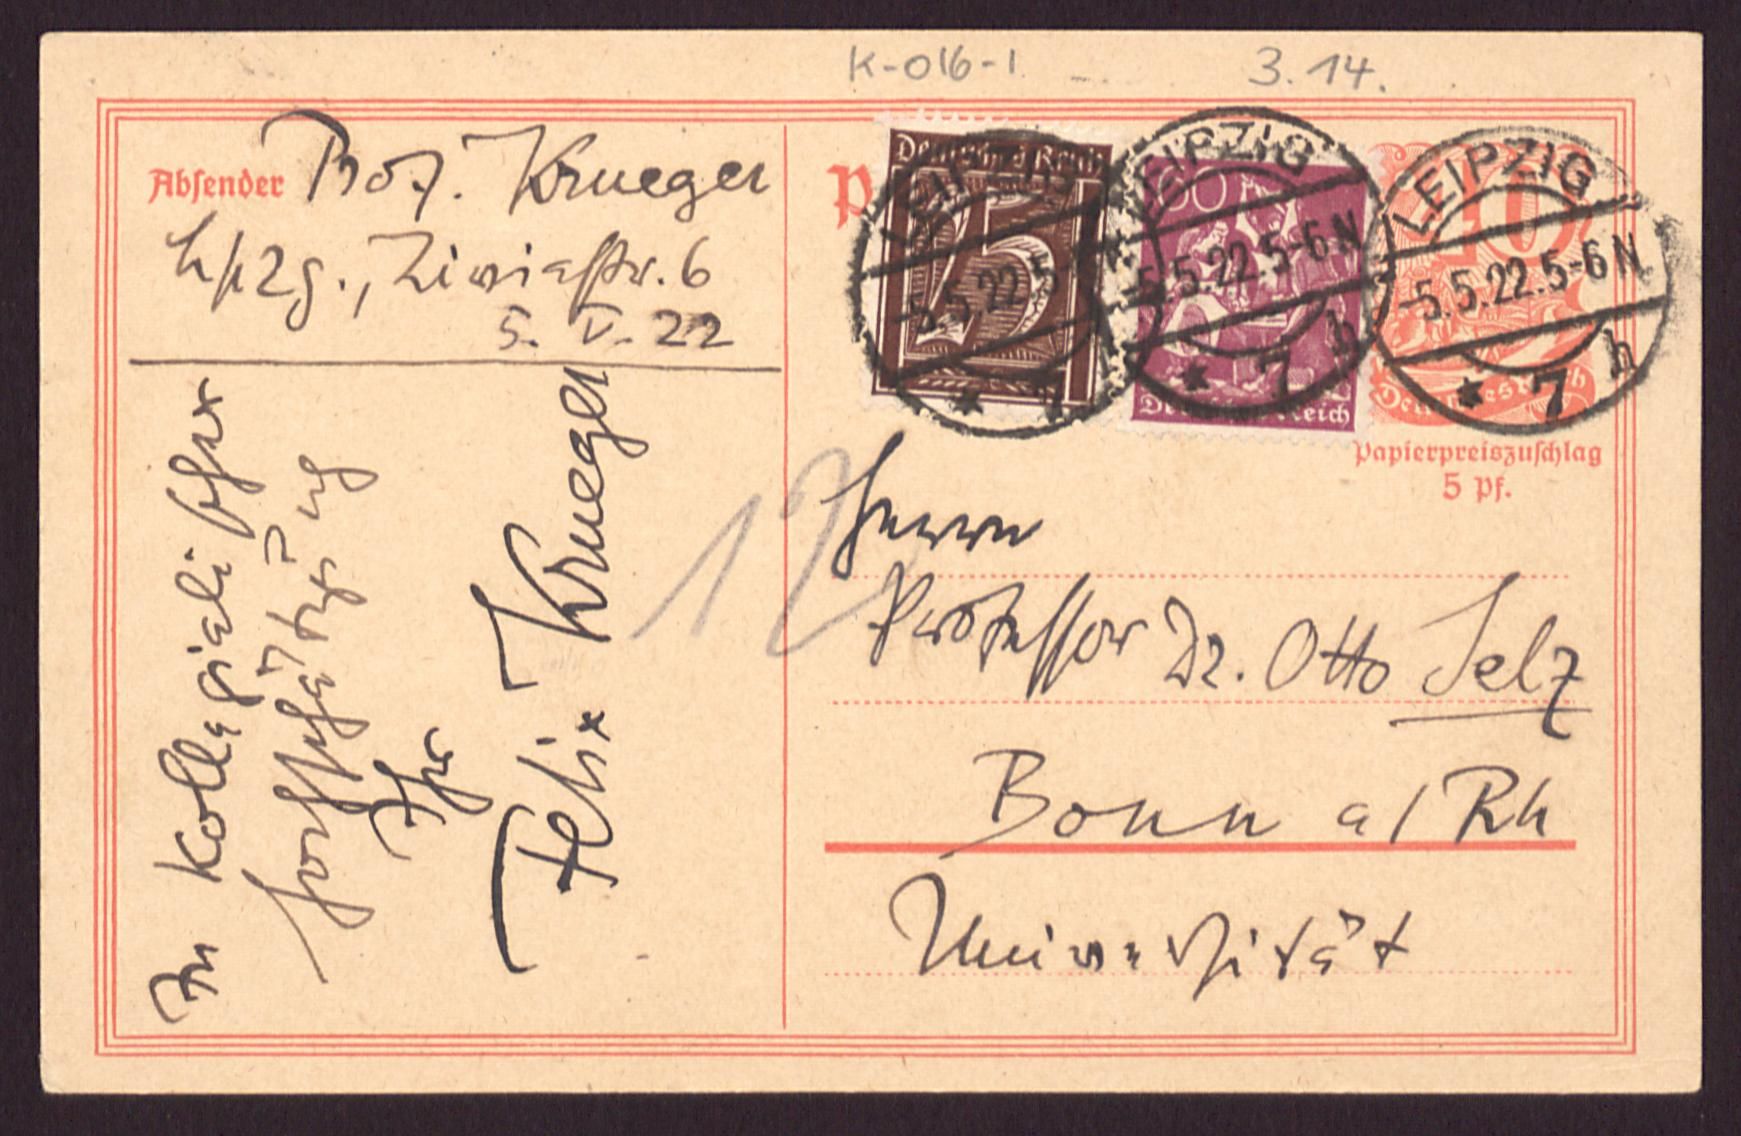 K-016-1
3. 14.
Absender Prof. Krueger
Lpzg., Liviastr. 6
5. V. 22
In kollegialischer
Hochschätzung
Ihr
Felix Krueger
12
P
Deutsches Reich
75
60
Deutsches Reich
40
Deutsches Reich
LEIPZIG
-5.5.22.5
* 7
LEIPZIG
-5.5.22.5-6N
* 7 h
LEIPZIG
-5.5.22.5-6N
* 7 h
Papierpreiszuschlag
5 Pf.
Herrn
Professor Dr. Otto Selz
Bonn a/Rh
Universität